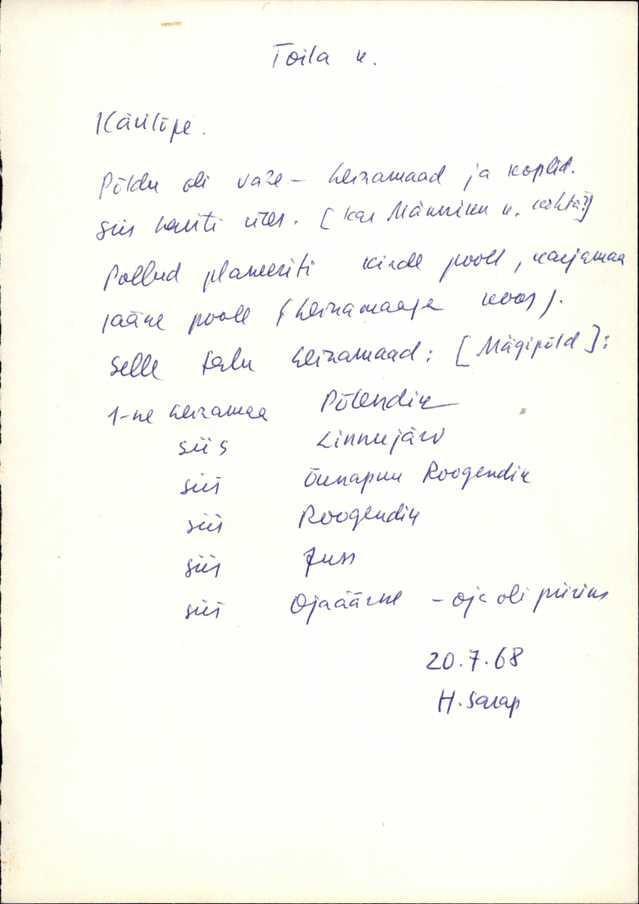 Toila k.
Käsitöpe.
Põldu oli vähe – heinamaad ja koplid.
Siis künti üles. [Kas Männiku k. kohta?]
Põllud planeeriti kirde poole, karjamaa
lääne poole (heinamaaga koos).
Selle talu heinamaad: [Mägipõld]:
1-ne heinamaa Põlendik
siis Linnujärv
siis Õunapuu Roogendik
siis Roogendik
siis Juss
siis Ojaäärne – oja oli piiriks
20.7.68
H. Sarap